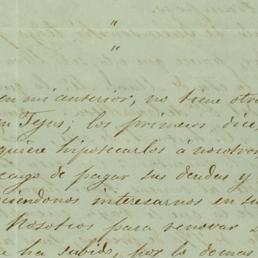 "
"
en mi anterior, no tiene otro
en Tejus; los primeros dice
quiere hipotecarlos á nosotros
cargo de pagar sus deudas y
ciendonos interesarnos en su
Nosotros para renovar
ha subido, por lo demas